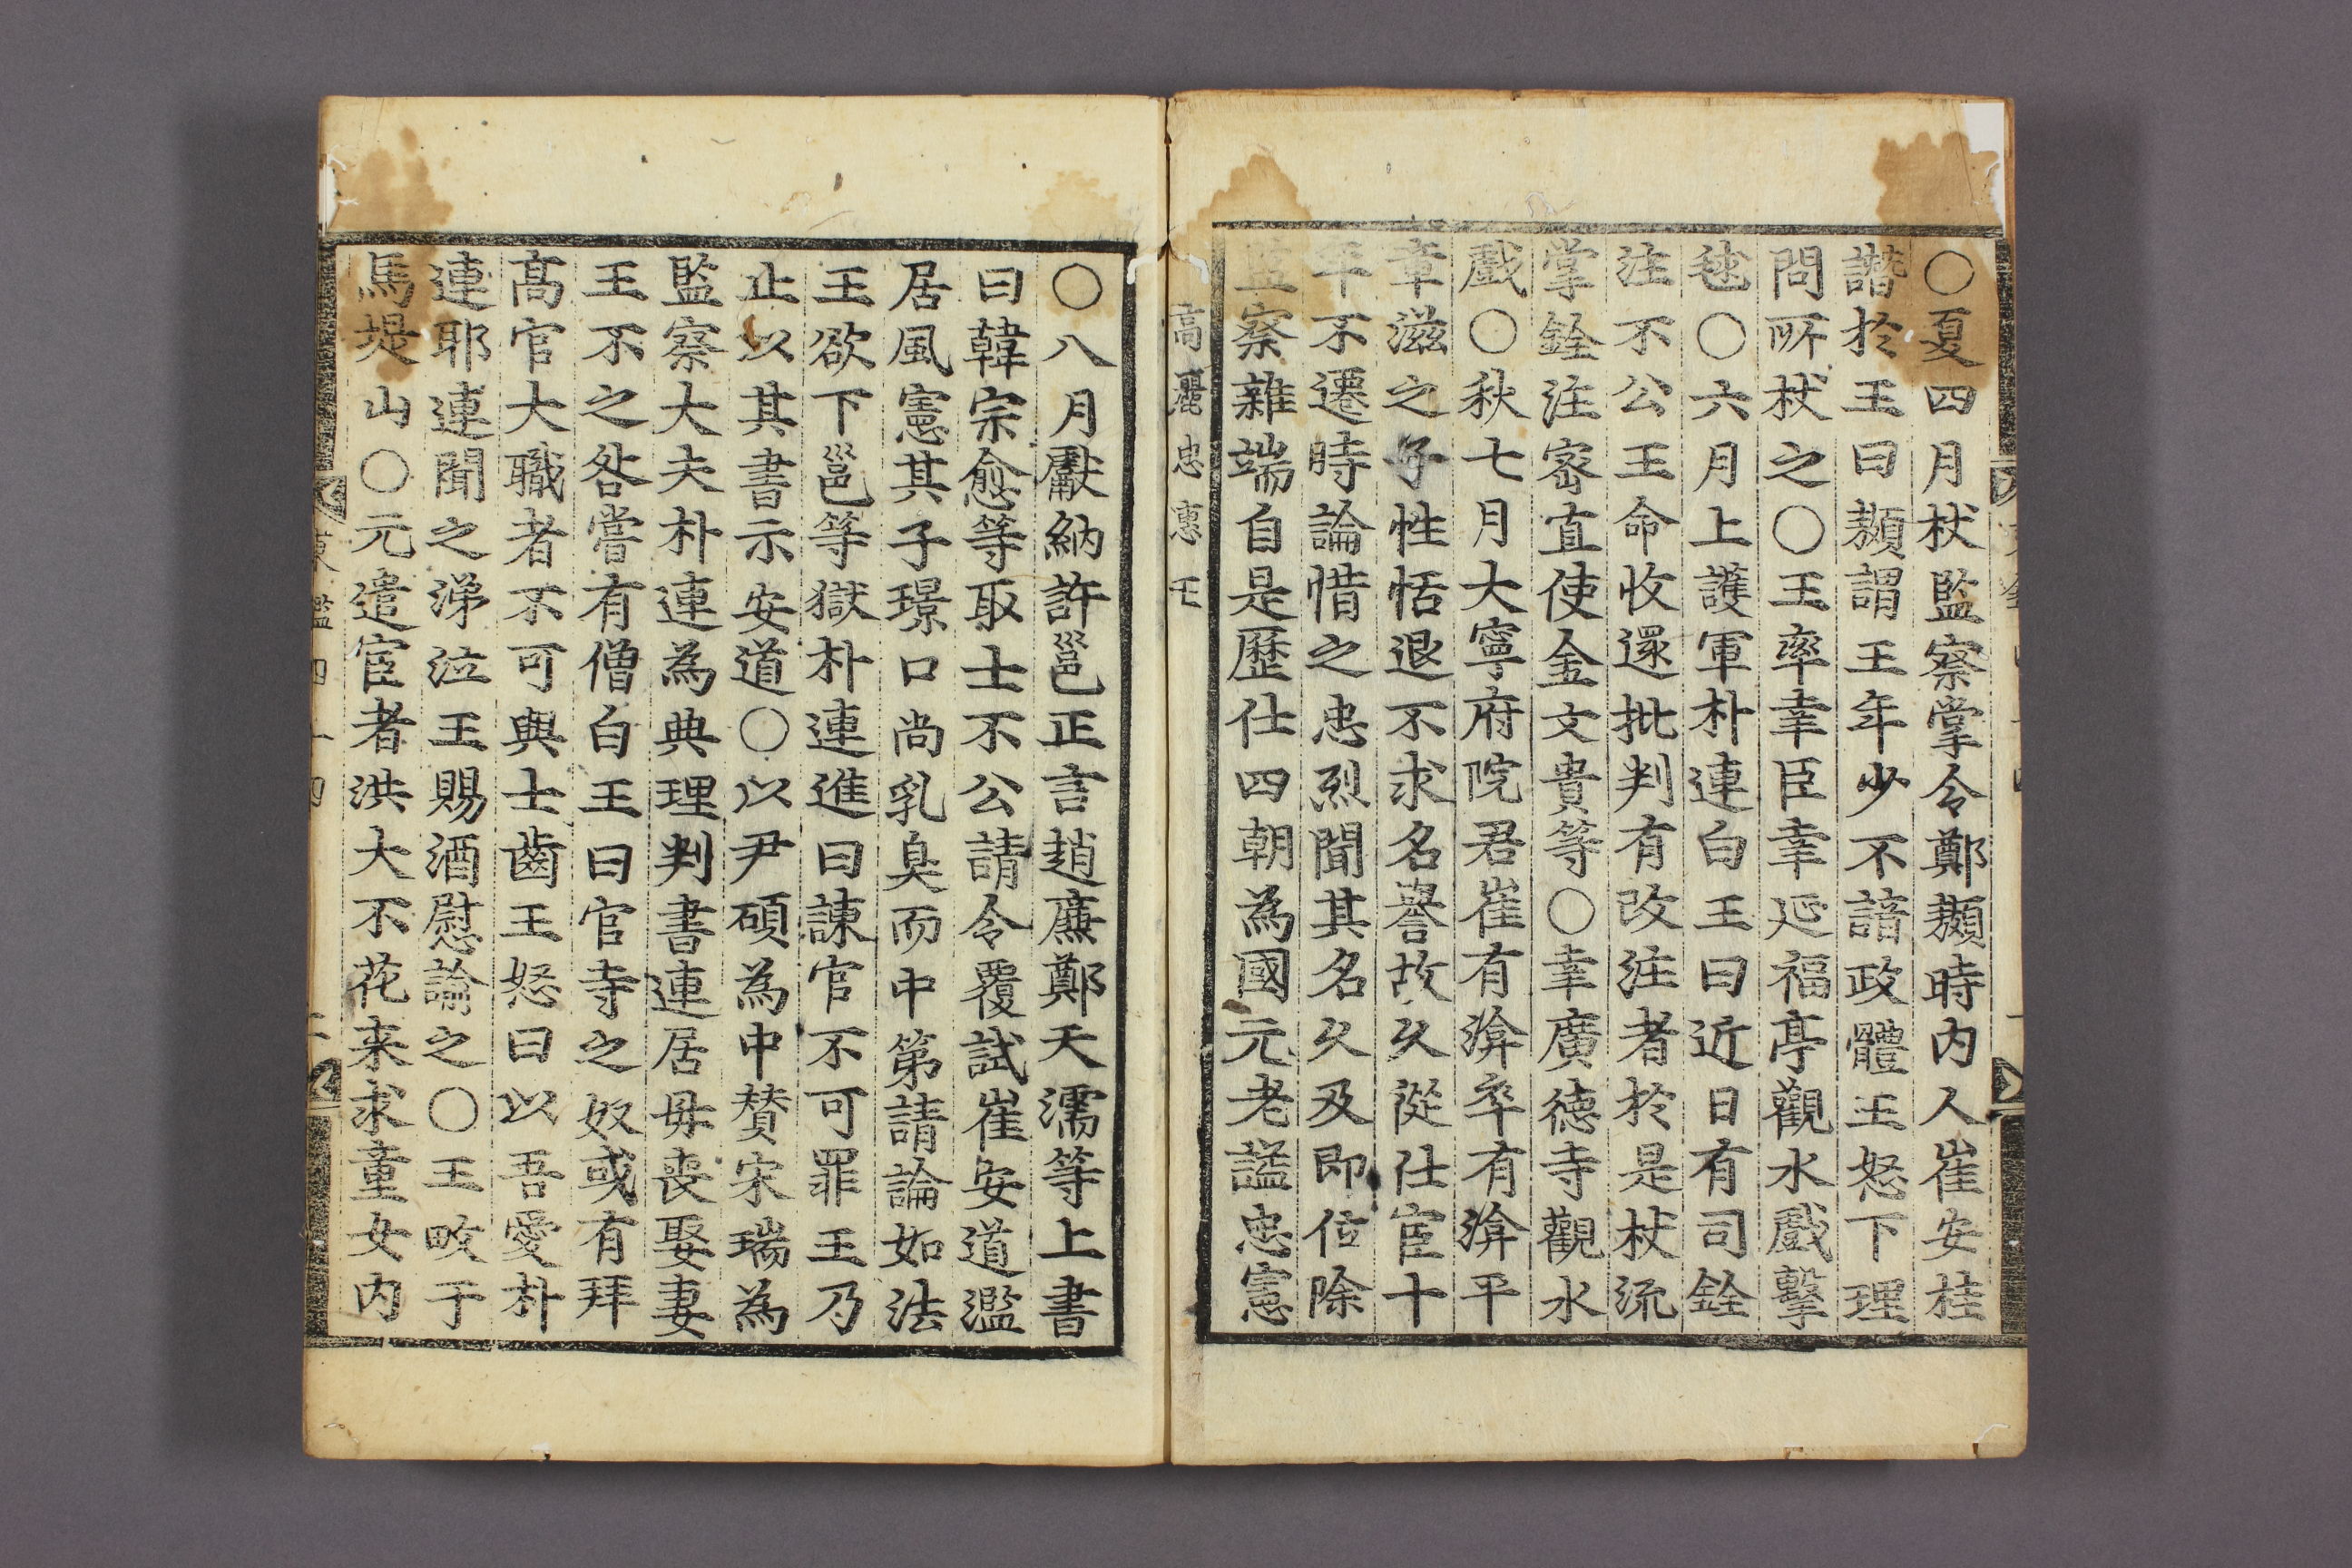 ○夏四月杖監察掌令鄭頻時内人崔安桂
譖於王曰頻謂王年少不諳政體王怒下理
問所杖之○王率幸臣幸延福亭觀水戲擊
毬○六月上護軍朴連白王曰近日有司銓
注不公王命收還批判有改注者於是杖流
掌銓注宻直使金文貴等○幸廣德寺觀水
戲○秋七月大寧府院君崔有渰卒有渰平
章滋之子性恬退不求名譽故久從仕宦十
年不遷時論惜之忠烈聞其名久及即位除
監察雜端自是歷仕四朝為國元老諡忠憲
高麗忠惠王
○八月獻納許邕正言趙廉鄭天濡等上書
曰韓宗愈等取士不公請令覆試崔安道濫
居風憲其子璟口尚乳臭而中第請論如法
王欲下邕等獄朴連進曰諫官不可罪王乃
止以其書示安道○以尹碩為中贊宋瑞為
監察大夫朴連為典理判書連居毋喪娶妻
王不之咎嘗有僧白王曰官寺之奴或有拜
髙官大職者不可與士齒王怒曰以吾愛朴
連耶連聞之涕泣王賜酒慰諭之○王畋于
馬堤山○元遣宦者洪大不花来求童女内
東鑑四十四